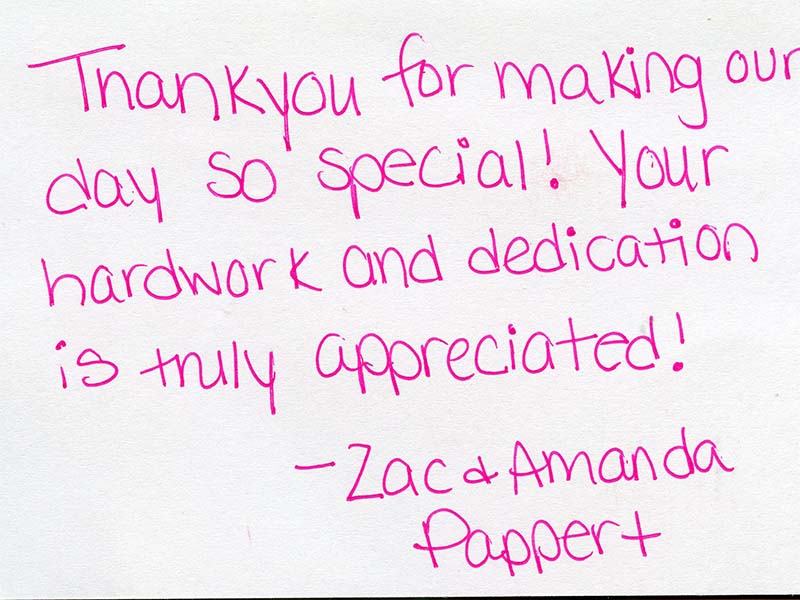 Thankyou for making our
day so special! Your
hardwork and dedication
is truly appreciated!
- Zac & Amanda
Pappert